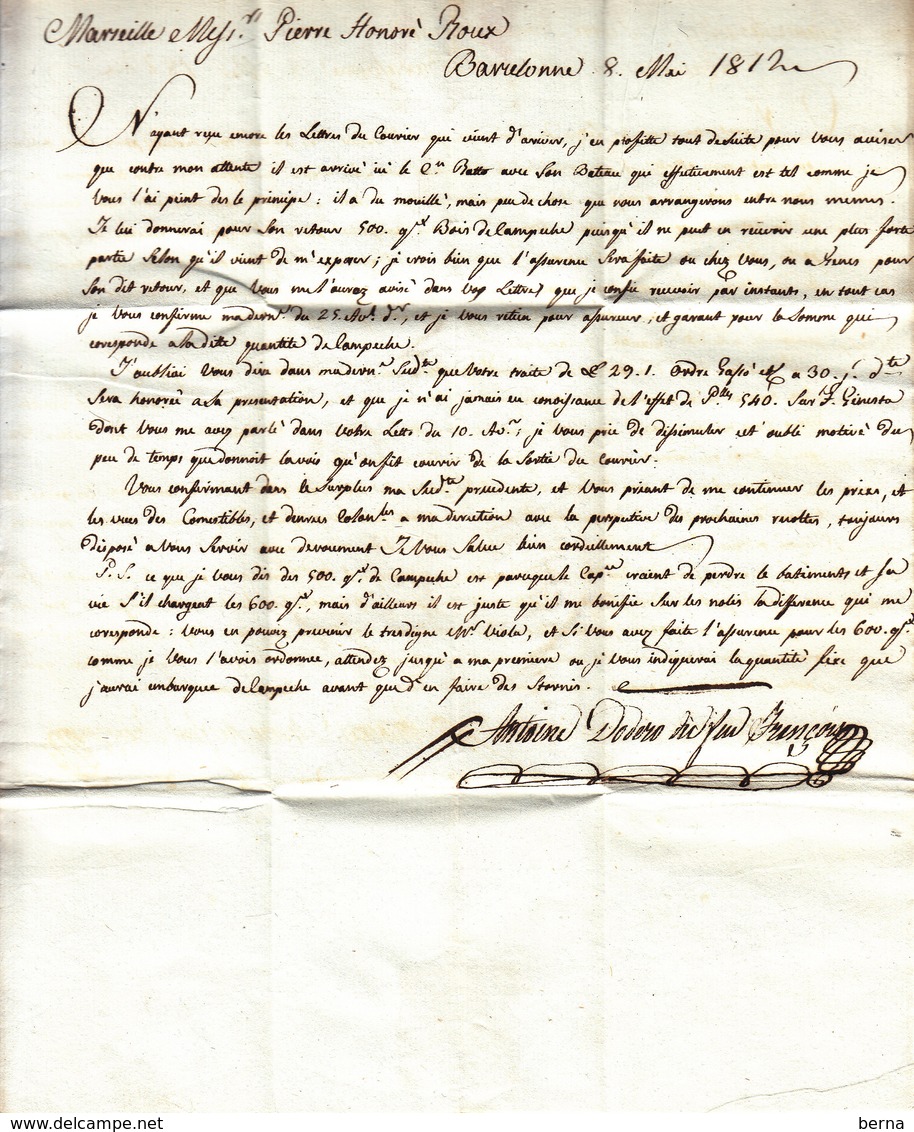 Marseille Mess.rs Pierre Honoré Roux
Barcelonne 8. Mai 1812
N'ayant reçu encore les Lettres du Courier qui vient d'arriver, j'en profitte tout desuite pour vous aviser
que contre mon attente il est arrivé ici le C.ne Batto avec son Bateau qui effectivement est tel comme je
vous l'ai peint des le principe: il a du mouillé, mais peu de chose que vous arrangerons entre nous memes.
Je lui donnerai pour son retour 500. q.x Bois de Campeche puisqu'il ne peut en recevoir une plus forte
partie selon qu'il vient de m'exposer; je crois bien que l'assurence sera faite ou chez vous, ou a Genes pour
son dit retour, et que vous me l'aurez avisé dans vos Lettres que je confie recevoir par instants, en tout cas
je vous confirme ma dern.e du 25. Av.l d.r, et je vous retien pour assureur, et garant pour la somme qui
coresponde a la ditte quantité de Campeche.
J'oubliai vous dire dans ma dern.e Sud.te que votre traite de 29.1. Ordre Gassó a 30. j. d.te
sera honorée a sa presentation, et que je n'ai jamais eu conoissance de l'effet de P.tes 540. Sur F. Ginesta
dont vous me avez parlé dans votre Lettre du 10. Av.l; je vous prie de dissimuler cet oubli motivé du
peu de temps que donnoit la voix qu'on fit courir de la sortie du Courier.
Vous confirmant dans le surplus ma Sud.te precedente, et vous priant de me continuer les prixes, et
les vues des Comestibles, et denrées Colon.les a ma direction avec la perspective des prochaines recoltes, toujours
disposé a vous servir avec devouement Je vous salue bien cordiellement
P.S. ce que je vous dis des 500. q.x de Campeche est parceque le Cap.ne craient de perdre le batiments et sa
vie s'il chargeat les 600. q.x, mais d'ailleurs il est juste qu'il me bonifie sur les nolis la difference qui me
coresponde: vous en pouvez prevenir le tres digne M.r Viola, et si vous avez faite l'assurence pour les 600. q.x
comme je vous l'avois ordonnee, attendez jusqu'a ma premiere ou je vous indiquerai la quantité fixe que
j'aurai embarquée de Campeche avant que d'en faire des Stornis.
Antoine Dodero de feu François
berna